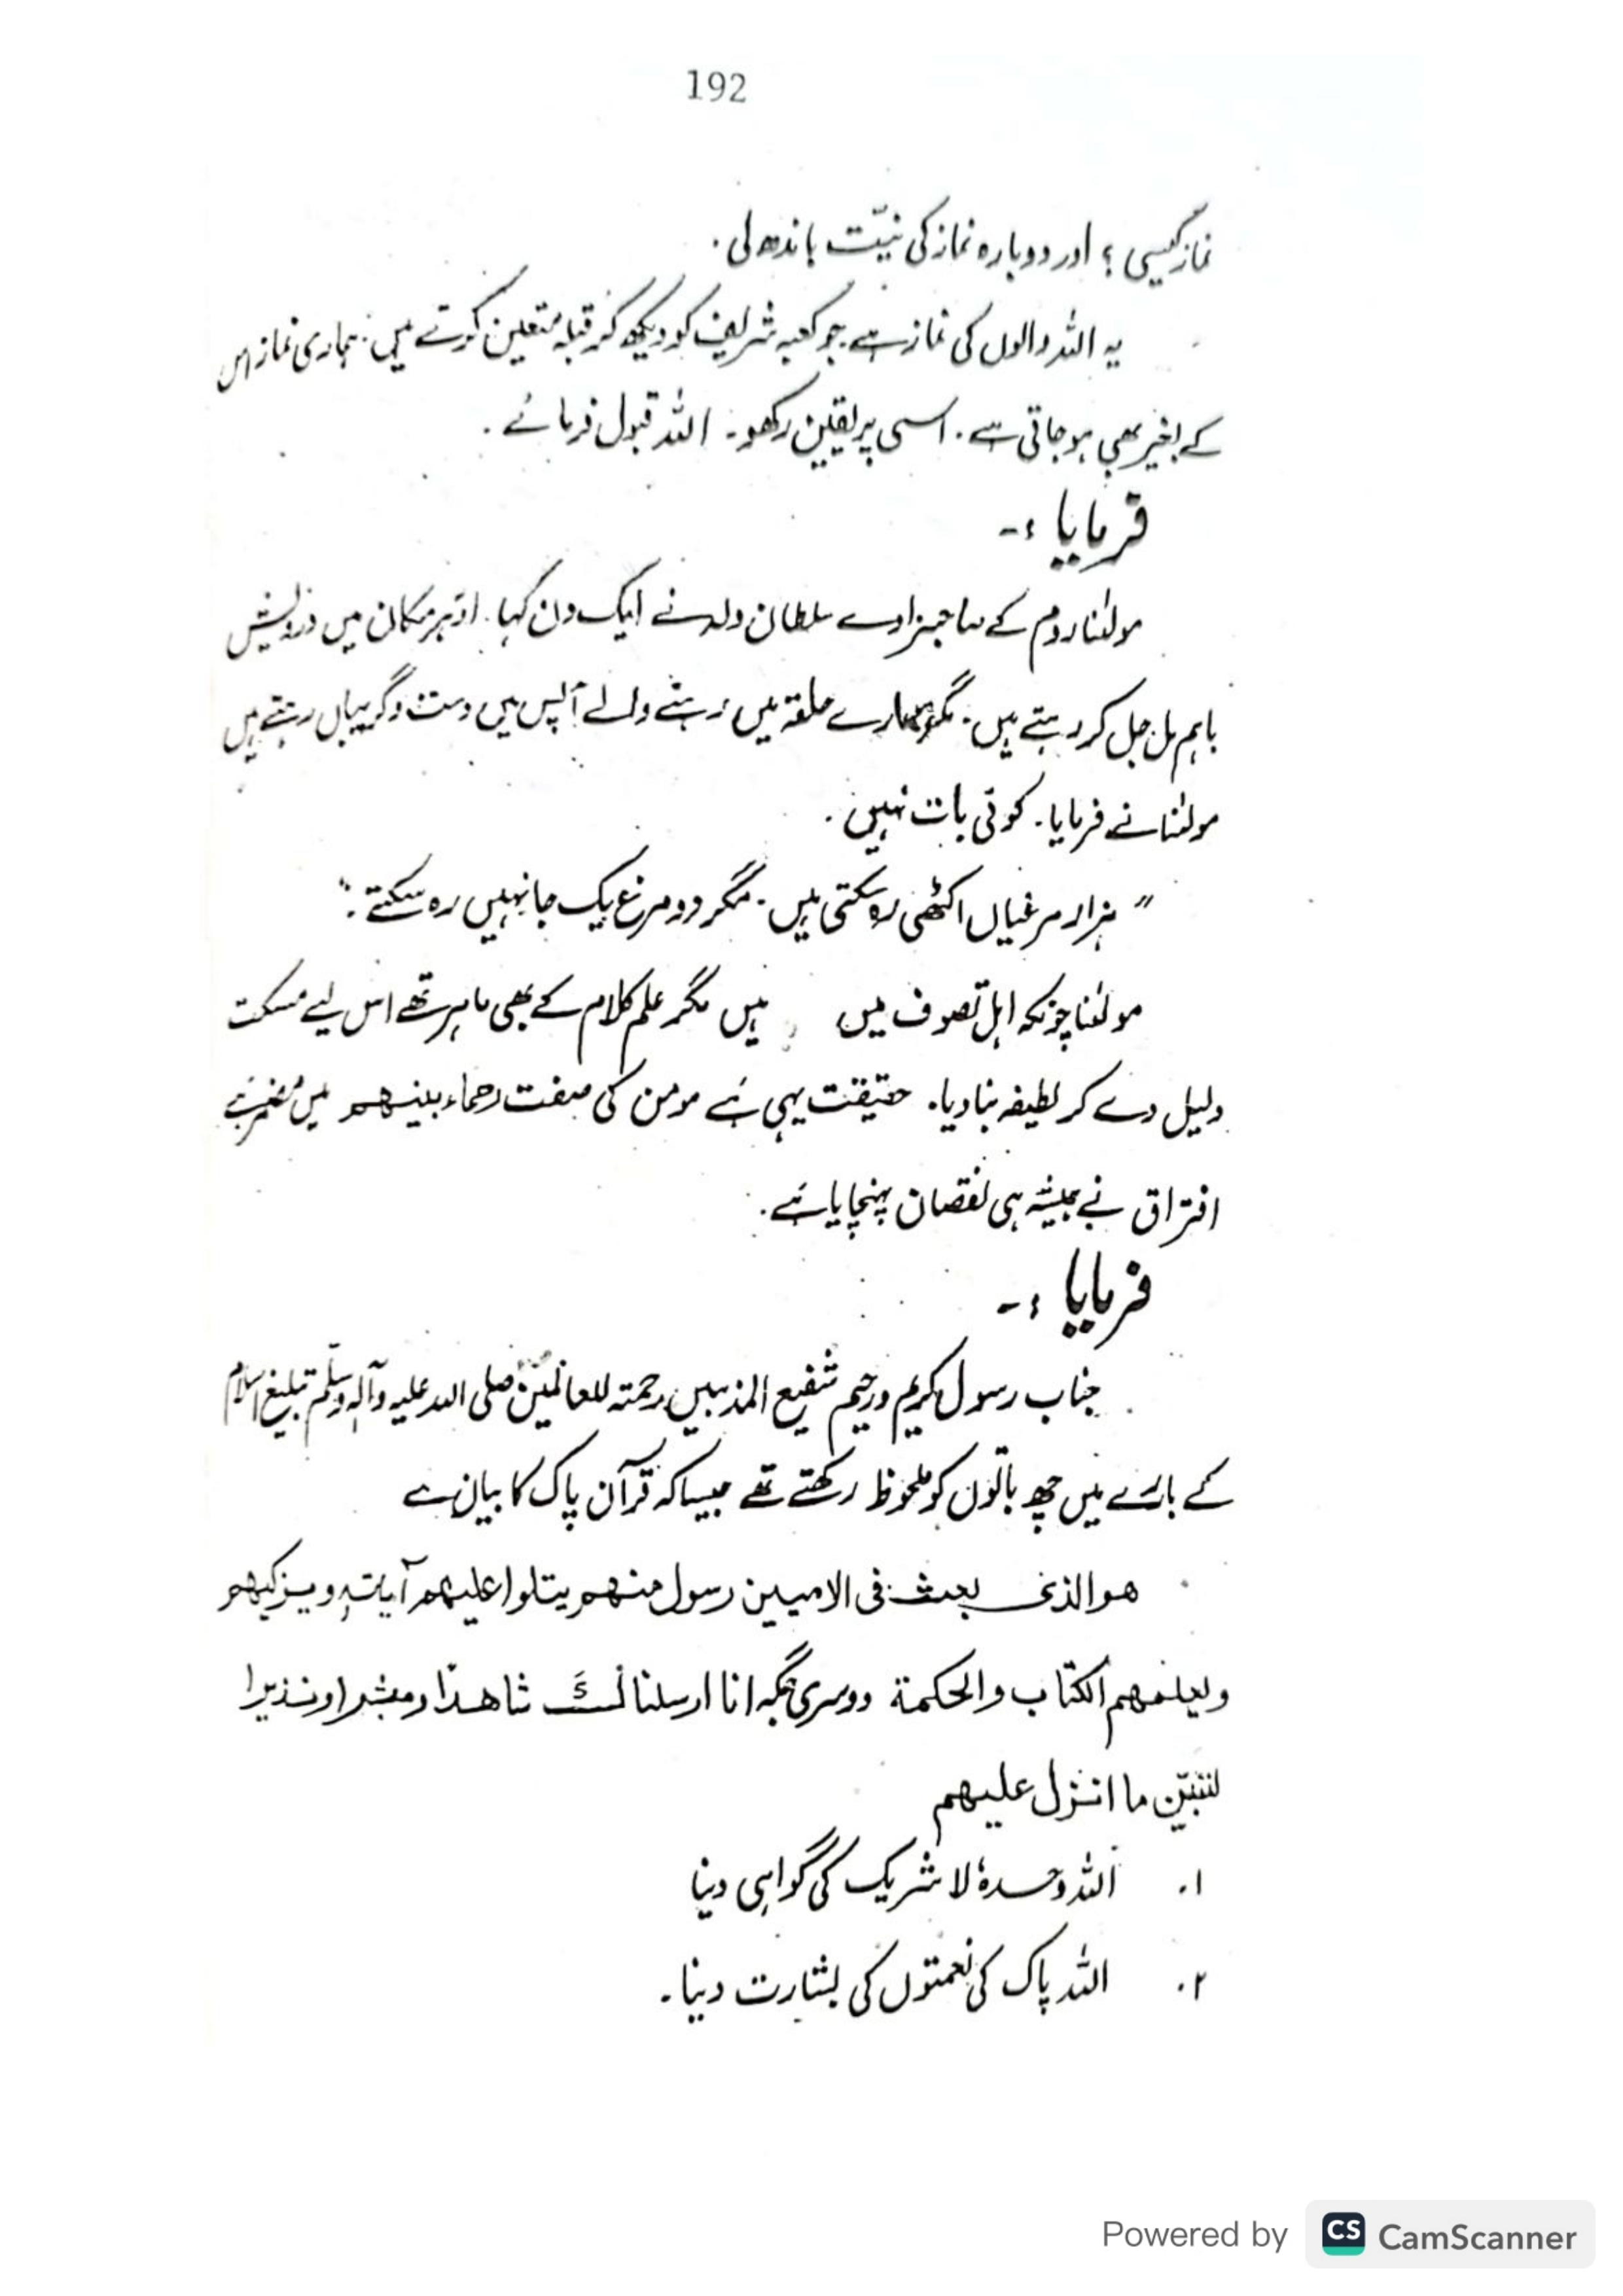 192
نماز کیسی ؟ اور دوبارہ نماز کی نیّت باندھ لی۔
یہ اللہ والوں کی نماز ہے جو کعبہ شریف کو دیکھ کر قبلہ متعین کرتے ہیں۔ ہماری نماز اس
کے بغیر بھی ہو جاتی ہے۔ اسی پر یقین رکھو۔ اللہ قبول فرمائے۔
فرمایا :-
مولٰنا روم کے صاحبزادے سلطان ولد نے ایک دن کہا۔ اور ہر مکان میں درویش
باہم مل جل کر رہتے ہیں۔ مگر ہمارے حلقہ میں رہنے والے آپس میں دست و گریباں رہتے ہیں
مولٰنا نے فرمایا۔ کوئی بات نہیں۔
" ہزار مرغیاں اکٹھی رہ سکتی ہیں۔ مگر دو مرغ یک جا نہیں رہ سکتے۔"
مولٰنا چونکہ اہل تصوف میں ہیں مگر علم کلام کے بھی ماہر تھے اس لیے مسکت
دلیل دے کر لطیفہ بنا دیا۔ حقیقت یہی ہَے مومن کی صفت رحماء بینھم میں مُضمر ہَے
افتراق نے ہمیشہ ہی نقصان پہنچایا ہَے۔
فرمایا :-
جناب رسول کریم و رحیم شفیع المذنبین رحمتہ للعالمین صلی اللہ علیہ وآلہٖ وسلّم تبلیغ اسلام
کے بارے میں چھ باتوں کو ملحوظ رکھتے تھے جیسا کہ قرآن پاک کا بیان ہے
ھوالذی بعث فی الامیین رسول منھم یتلوا علیھم آیاتہٖ ویزکیھم
ویعلمھم الکتاب والحکمة دوسری جگہ انا ارسلنا لکَ شاھدًا ومبشرا ونذیرا
لتبیّن ما انزل علیھم
۱۔ اللہ وحدہٗ لا شریک کی گواہی دینا
۲۔ اللہ پاک کی نعمتوں کی بشارت دینا۔
Powered by CS CamScanner